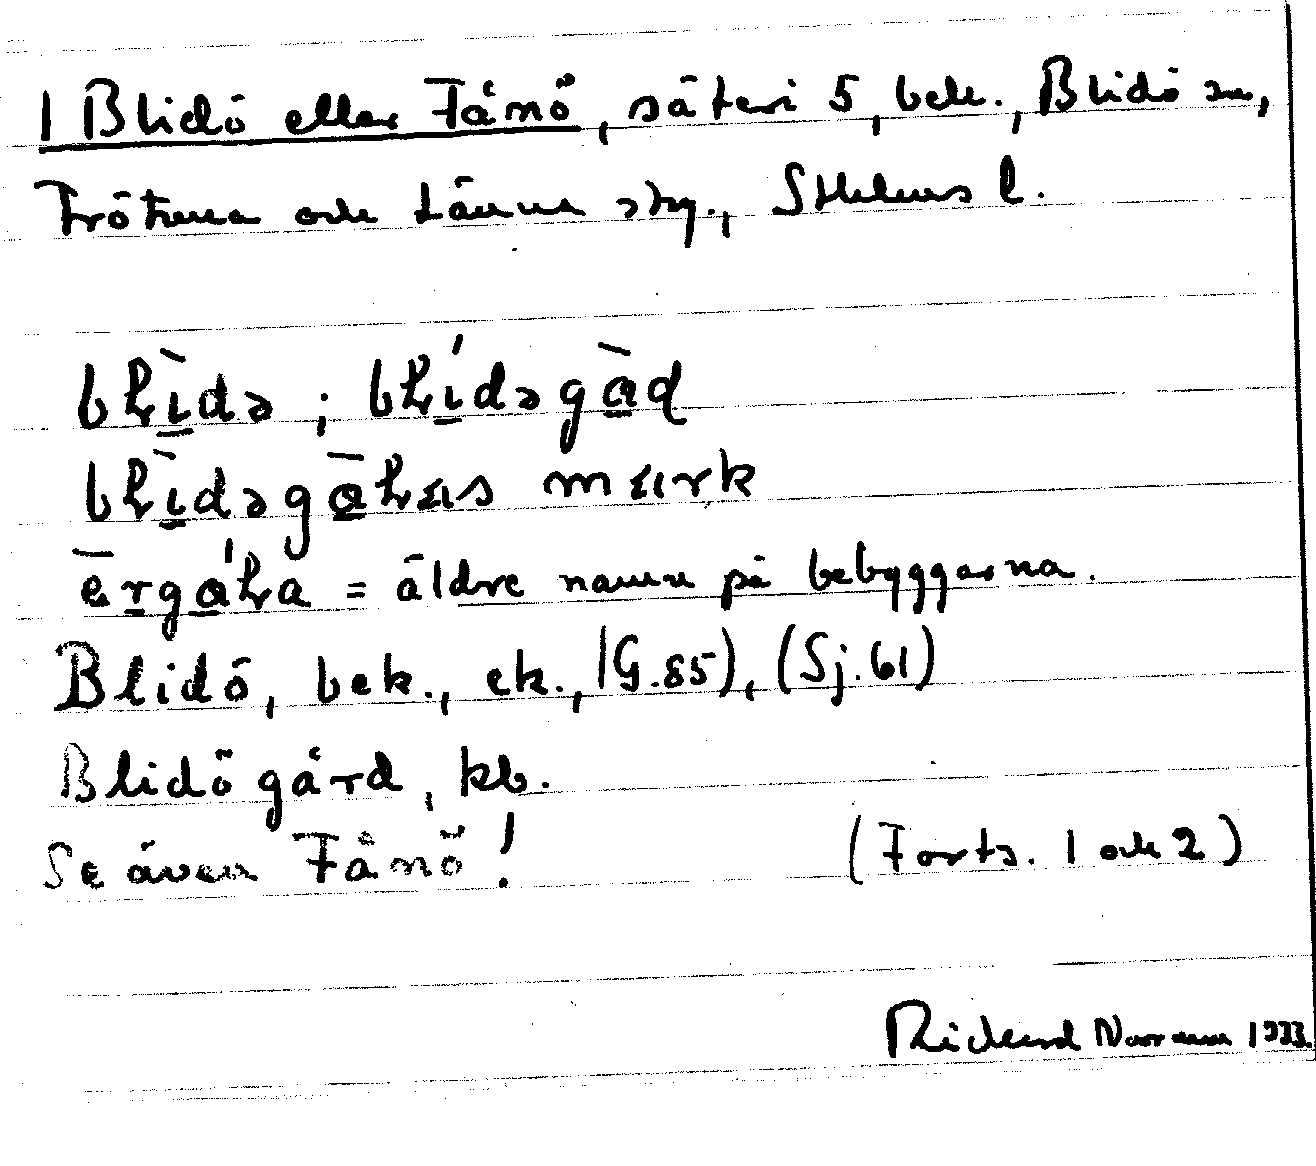 1 Blidö eller Fånö, säteri 5, bek., Blidö sn,
Frötuna och Länna skg., Sthlms l.
blìdə ; blídəgàḍ
blìdəgāɭas mark
ērgáɭa = äldre namn på bebyggarna.
Blidö, bek., ek., (G.85), (Sj.61)
Blidö gård, kb.
Se även Fånö!
(Forts. 1 och 2)
Rickard Norman 1933